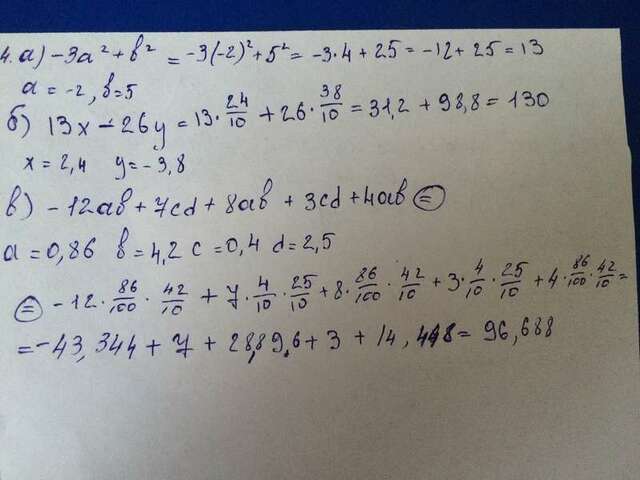 4. а) -3a² + b² = -3(-2)² + 5² = -3·4 + 25 = -12 + 25 = 13
a = -2, b = 5
б) 13x - 26y = 13·24/10 + 26·38/10 = 31,2 + 98,8 = 130
x = 2,4 y = -3,8
в) -12ab + 7cd + 8ab + 3cd + 4ab =
a = 0,86 b = 4,2 c = 0,4 d = 2,5
= -12·86/100·42/10 + 7·4/10·25/10 + 8·86/100·42/10 + 3·4/10·25/10 + 4·86/100·42/10 =
= -43,344 + 7 + 2889,6 + 3 + 14,448 = 96,688